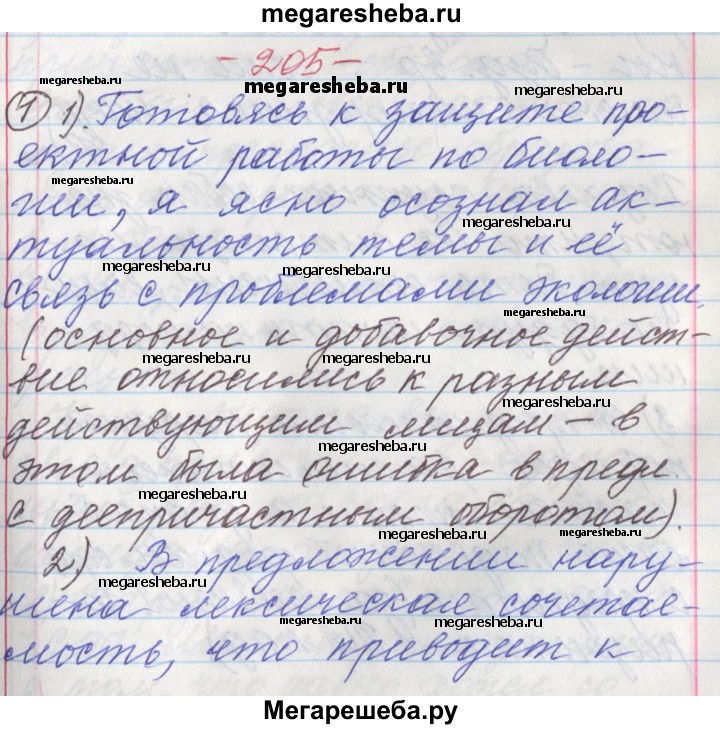 megaresheba.ru
- 205 -
megaresheba.ru
megaresheba.ru
① 1). Готовясь к защите про-
ектной работы по биоло-
megaresheba.ru
гии, я ясно осознал ак-
megaresheba.ru
туальность темы и её
megaresheba.ru megaresheba.ru
связь с проблемами экологии.
(основное и добавочное дейст-
megaresheba.ru megaresheba.ru
вие относились к разным
megaresheba.ru
действующим лицам – в
megaresheba.ru
этом была ошибка в предл.
megaresheba.ru
с деепричастным оборотом).
megaresheba.ru
2) В предложении нару-
megaresheba.ru
шена лексическая сочетае-
megaresheba.ru megaresheba.ru
мость, что приводит к
Мегарешеба.ру